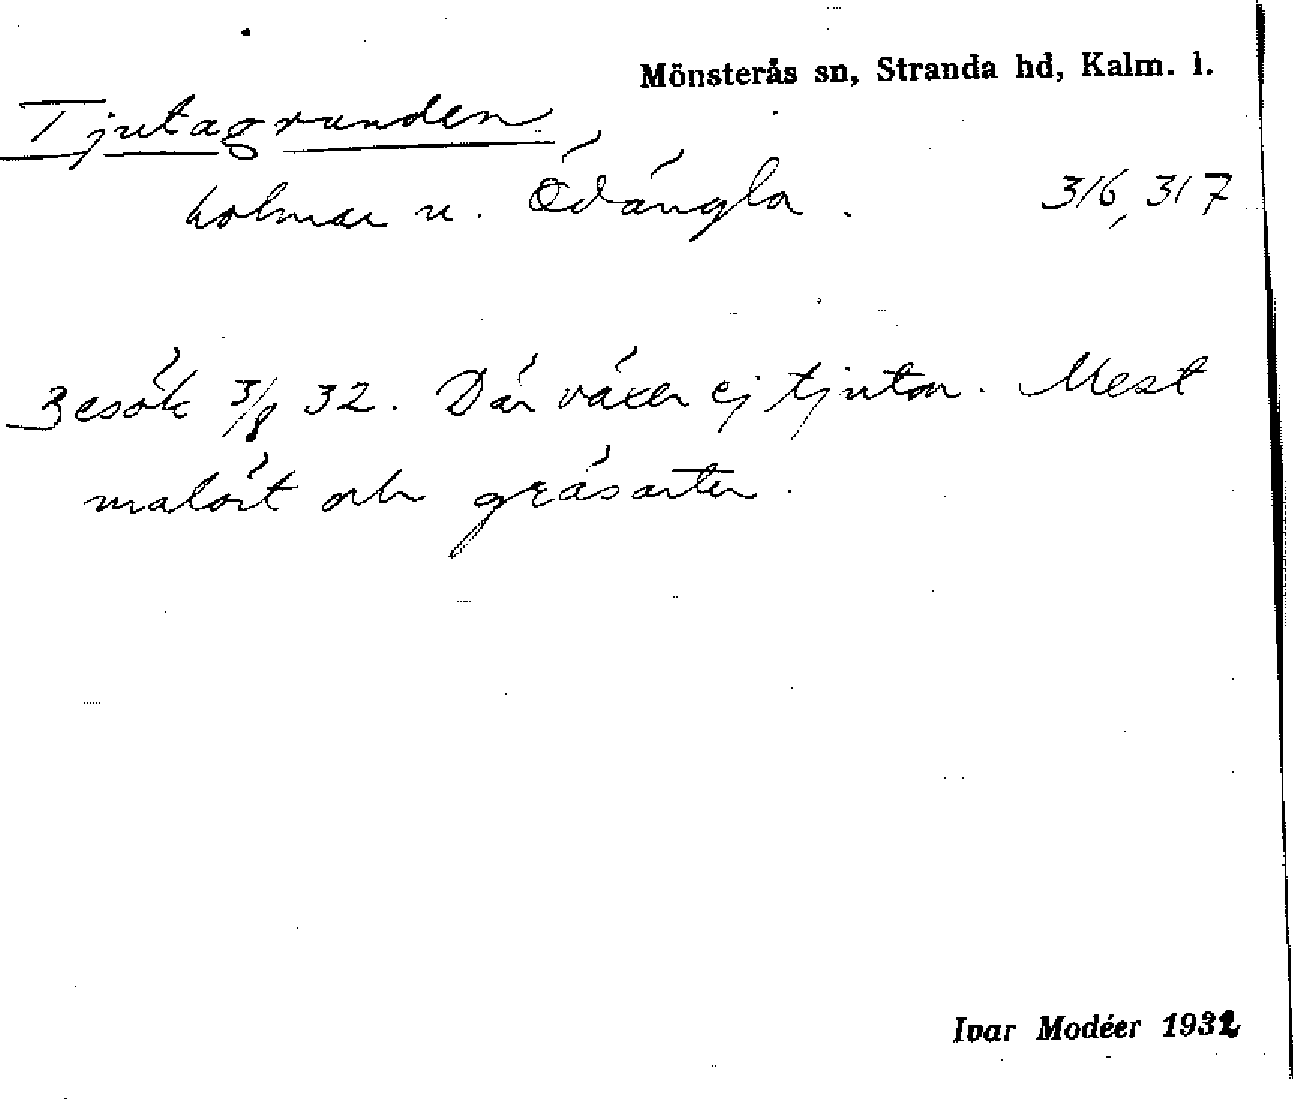 Mönsterås sn, Stranda hd, Kalm. l.
Tjutagrunden
holmar n. Ödängla. 316, 317
Besök 3/8 32. Där växer ej tjutor. Mest
malört och gräsarter.
Ivar Modéer 1932